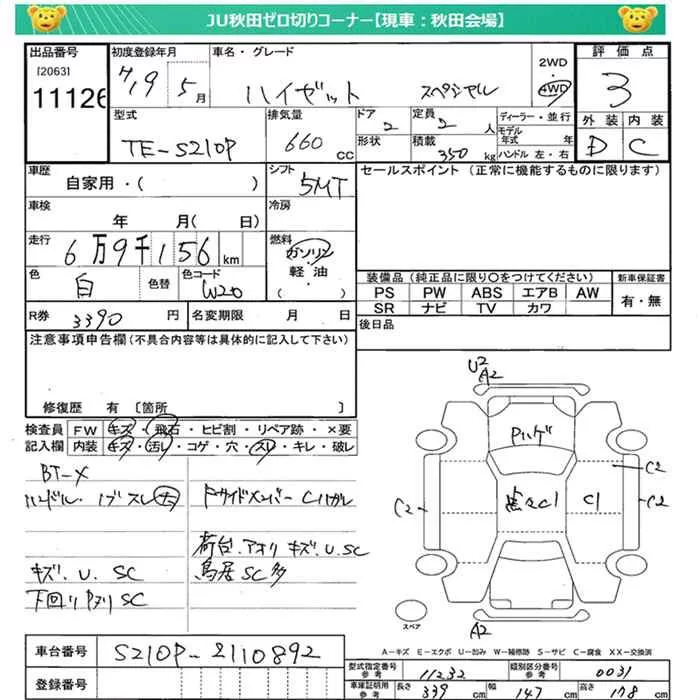 JU秋田ゼロ切りコーナー【現車：秋田会場】
出品番号
[2063]
11126
初度登録年月
H19 5 月
車名・グレード
ハイゼット スペシャル
2WD
4WD
評価点
3
外装 内装
D C
型式
TE-S210P
排気量
660 cc
ドア 2
形状
定員 2 人
積載 350 kg
ディーラー・並行
モデル年式 年
ハンドル 左・右
車歴
自家用・( )
シフト
5MT
セールスポイント（正常に機能するものに限ります）
車検
年 月 日
冷房
走行
6万9千156 km
燃料
ガソリン
軽油・
( )
色
白
色替
色コード
W20
装備品（純正品に限り○をつけてください）
新車保証書
PS PW ABS エアB AW
SR ナビ TV カワ
有・無
R券 3390 円
名変期限 月 日
後日品
注意事項申告欄（不具合内容等は具体的に記入して下さい）
修復歴 有 〔箇所 〕
検査員記入欄
FW キズ・飛石・ヒビ割・リペア跡・×要
内装 キズ・汚レ・コゲ・穴・スレ・キレ・破レ
BT-X
ハンドル・ノブスレ大
ドサイドメンバーCハガレ
荷台.アオリ キズ.U.SC
キズ.U.SC
鳥居SC多
下回りPヌリSC
U2
A2
Pハゲ
C2
C2
C2
点々C1
C1
A2
スペア
A-キズ E-エクボ U-凹み W-補修跡 S-サビ C-腐食 XX-交換済
車台番号
S210P-2110892
登録番号
型式指定番号
参考
11232
類別区分番号
参考
0031
車庫証明用
参考
長さ 339 cm
幅 147 cm
高さ 178 cm